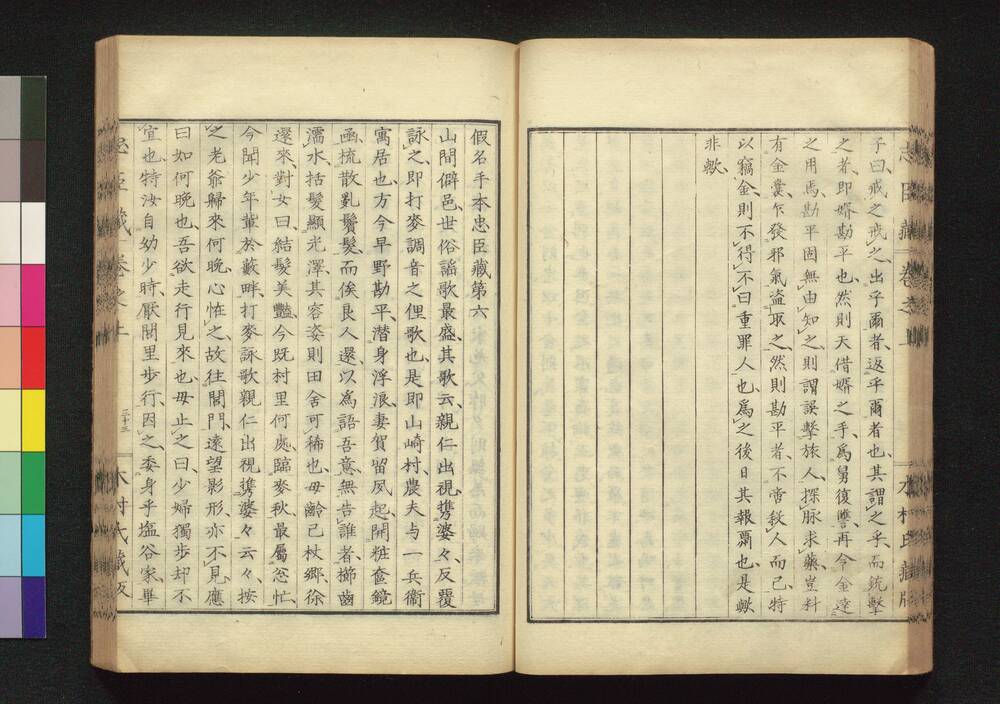 子曰、戒之戒之、出乎爾者、返乎爾者也、其謂之乎、而銃擊
之者、即婿勘平也、然則天借婿之手、爲舅復讐、再今金達
之用焉、勘平固無由知之、則謂誤擊旅人、探脉求藥、豈料
有金囊、乍發邪氣盗取之、然則勘平者、不啻救人而已、特
以竊金、則不得不曰重罪人也、爲之後日其報禍也、是歟
非歟、
忠臣藏 卷之上
木村氏藏版
假名手本忠臣藏第六
山間僻邑、世俗謡歌最盛、其歌云、親仁出視携婆々、反覆
詠之、即打麥調音之俚歌也、是即山崎村、農夫与一兵衞
寓居也、方今早野勘平、潜身浮浪、妻賀留夙起、開粧奩鏡
函、梳散亂鬢髮、而俟良人還、以爲語吾意、無告誰者、櫛齒
濡水、括髮顯光澤、其容姿則田舍可稀也、母齡已杖鄉、徐
還來對女曰、結髮美豔、今既村里何處臨麥秋最屬忩忙、
今聞少年輩於藪畔、打麥詠歌親仁出視携婆々云々、按
之老爺歸來何晚、心怪之、故往閭門、遠望影形、亦不見應
曰、如何晚也、吾欲走行見來也、母止之曰、少婦獨步却不
宜也、特汝自幼少時、厭閭里步行、因之、委身乎塩谷家、畢
忠臣藏 卷之上
三十三
木村氏藏版